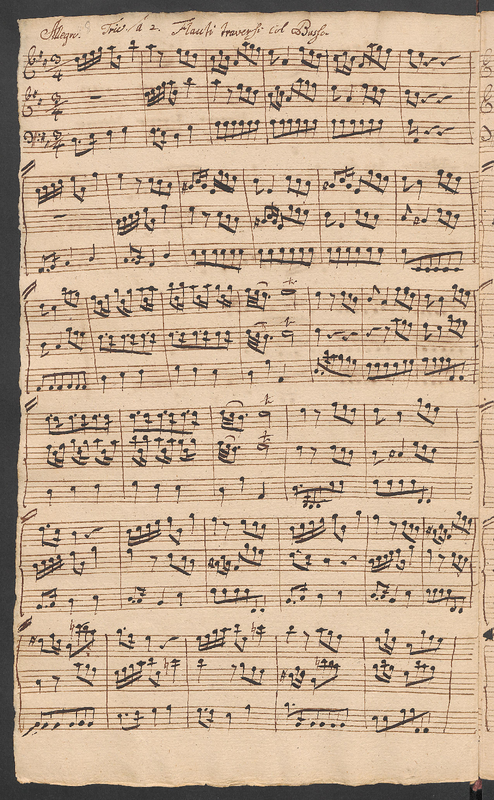 Allegro. Trio / à 2. Flauti traversi col Basso.
3/4
3/4
3/4